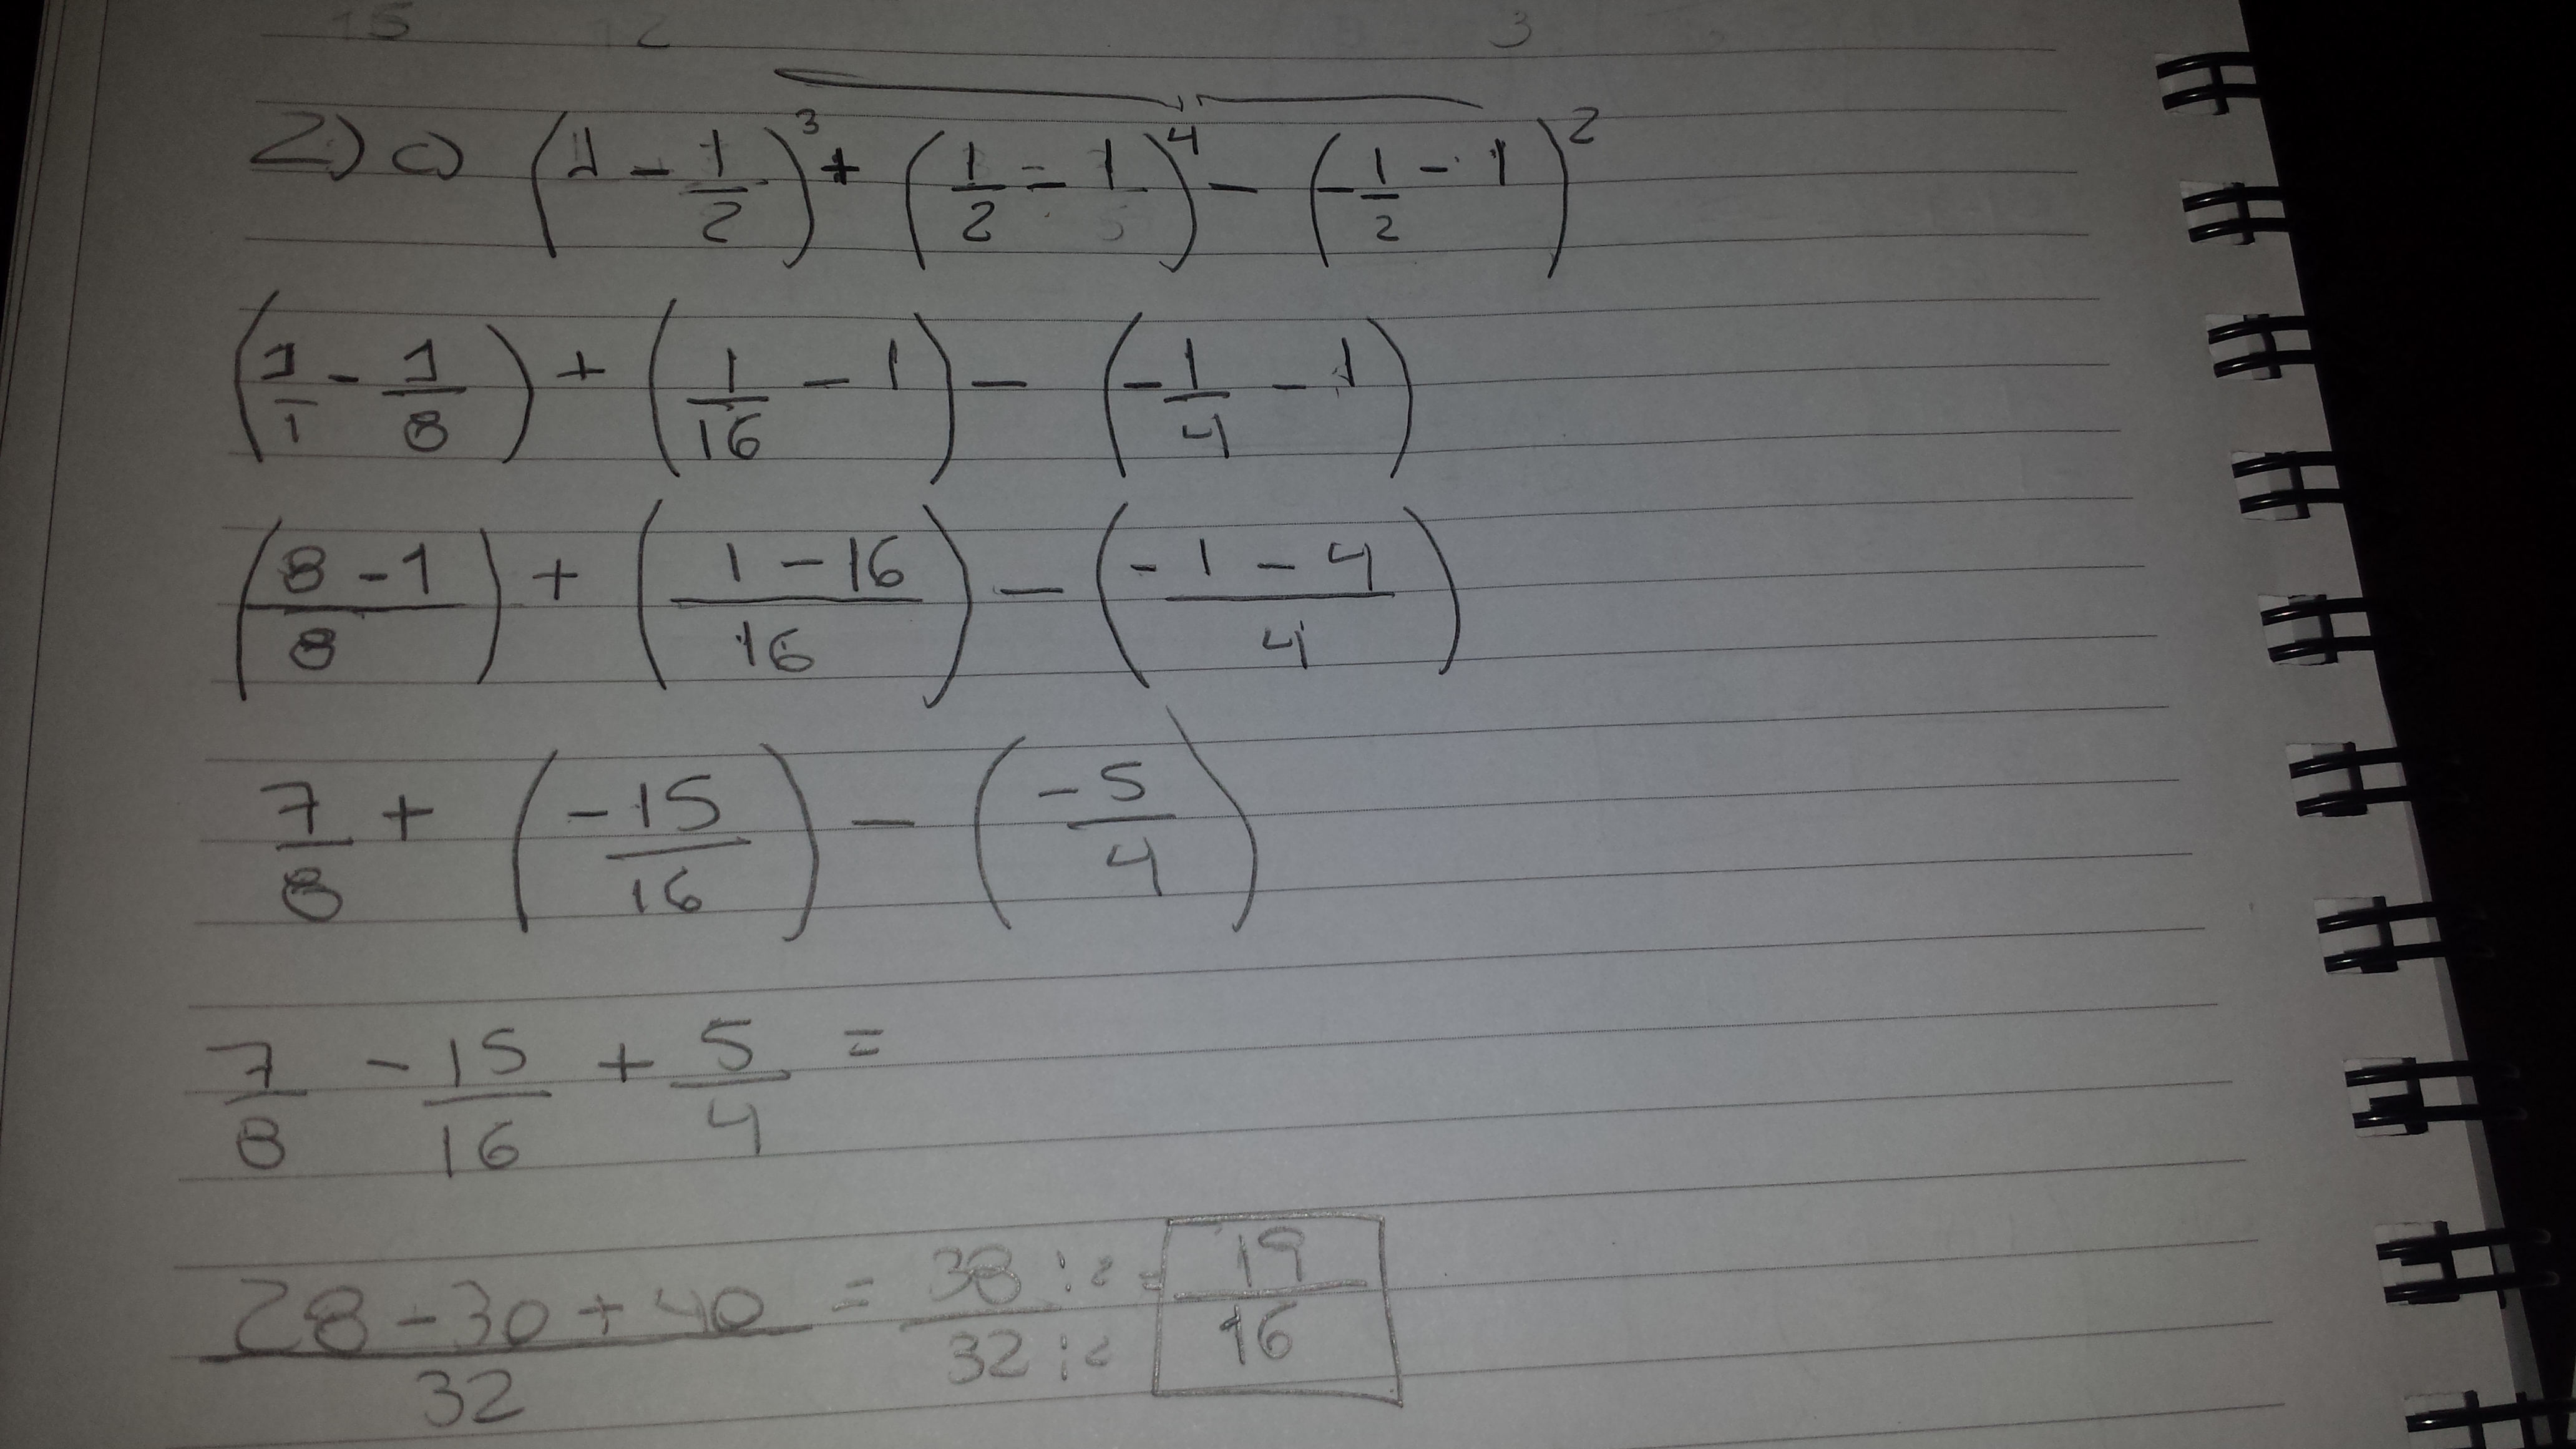 15 12 3
2) c) (1 - 1/2)³ + (1/2 - 1)⁴ - (-1/2 - 1)²
(1/1 - 1/8) + (1/16 - 1) - (-1/4 - 1)
(8 - 1/8) + (1 - 16/16) - (-1 - 4/4)
7/8 + (-15/16) - (-5/4)
7/8 - 15/16 + 5/4 =
28 - 30 + 40/32 = 38:2/32:2 = 19/16